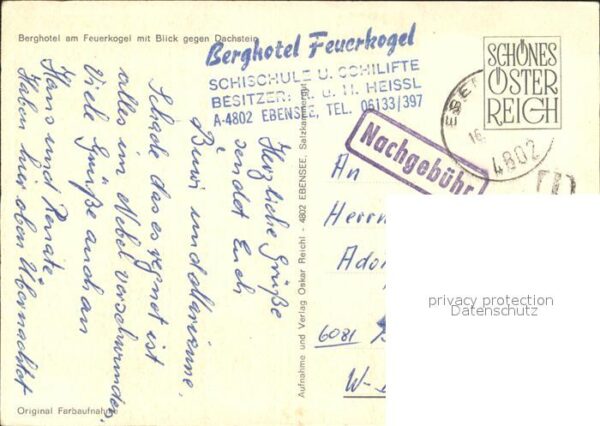 Berghotel am Feuerkogel mit Blick gegen Dachstein
Berghotel Feuerkogel
SCHISCHULE U. SCHILIFTE
BESITZER: H. HEISSL
A-4802 EBENSEE, TEL. 06133/397
SCHÖNES
ÖSTER
REICH
16.
4802
Nachgebühr
Herzliche Grüße
sendet Euch
und Marianne.
Schade das es regnet ist
alles im Nebel verschwunden.
Viele Grüße auch an
Hans und Renate
Haben hier oben Übernachtet
Aufnahme und Verlag Oskar Reichl - 4802 EBENSEE, Salzkammergut
An
Herrn
6081
W-
privacy protection
Datenschutz
Original Farbaufnahme